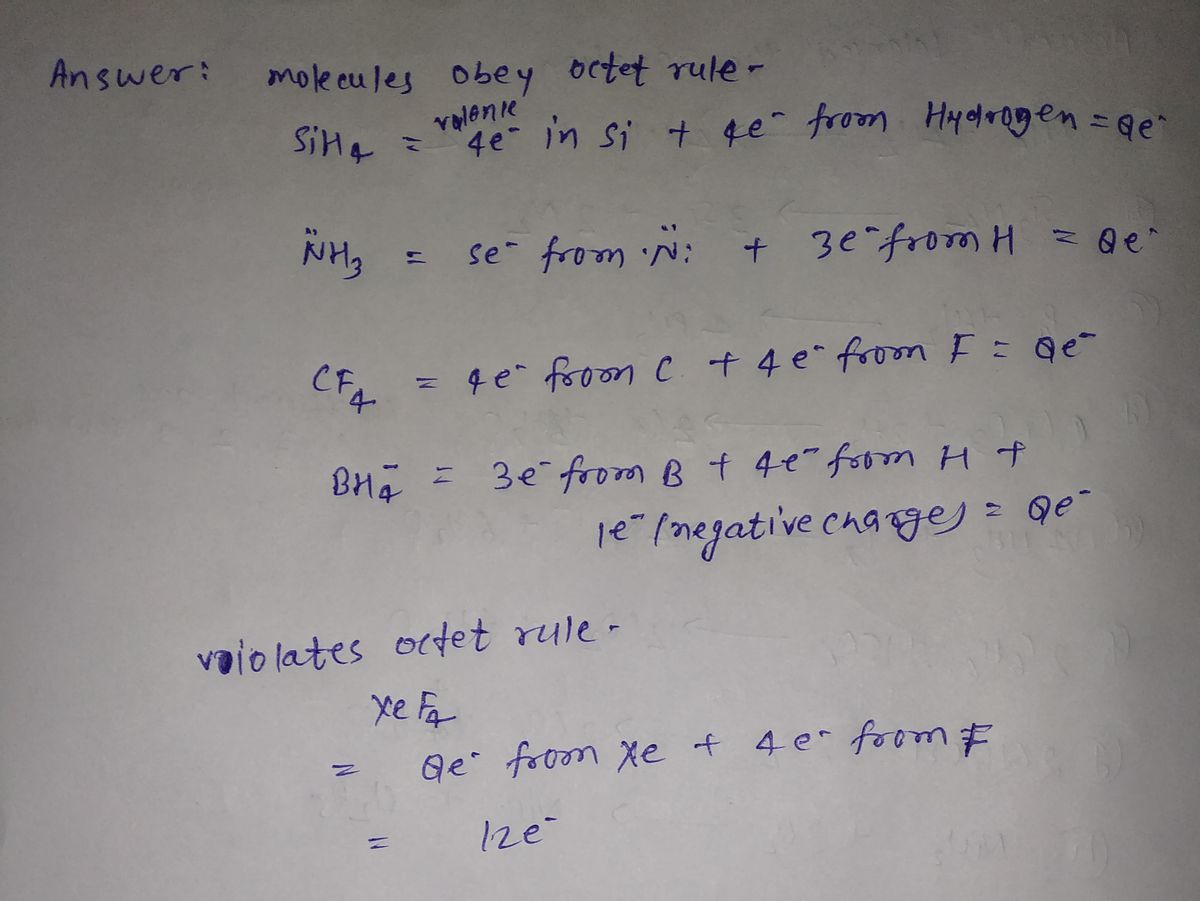 Answer: molecules obey octet rule -
SiH4 = valence 4e⁻ in Si + 4e⁻ from Hydrogen = 8e⁻
N̈H3 = 5e⁻ from ·N̈: + 3e⁻ from H = 8e⁻
CF4 = 4e⁻ from C + 4e⁻ from F = 8e⁻
BH4⁻ = 3e⁻ from B + 4e⁻ from H +
1e⁻ (negative charge) = 8e⁻
voiolates octet rule -
XeF4
= 8e⁻ from Xe + 4e⁻ from F
= 12e⁻